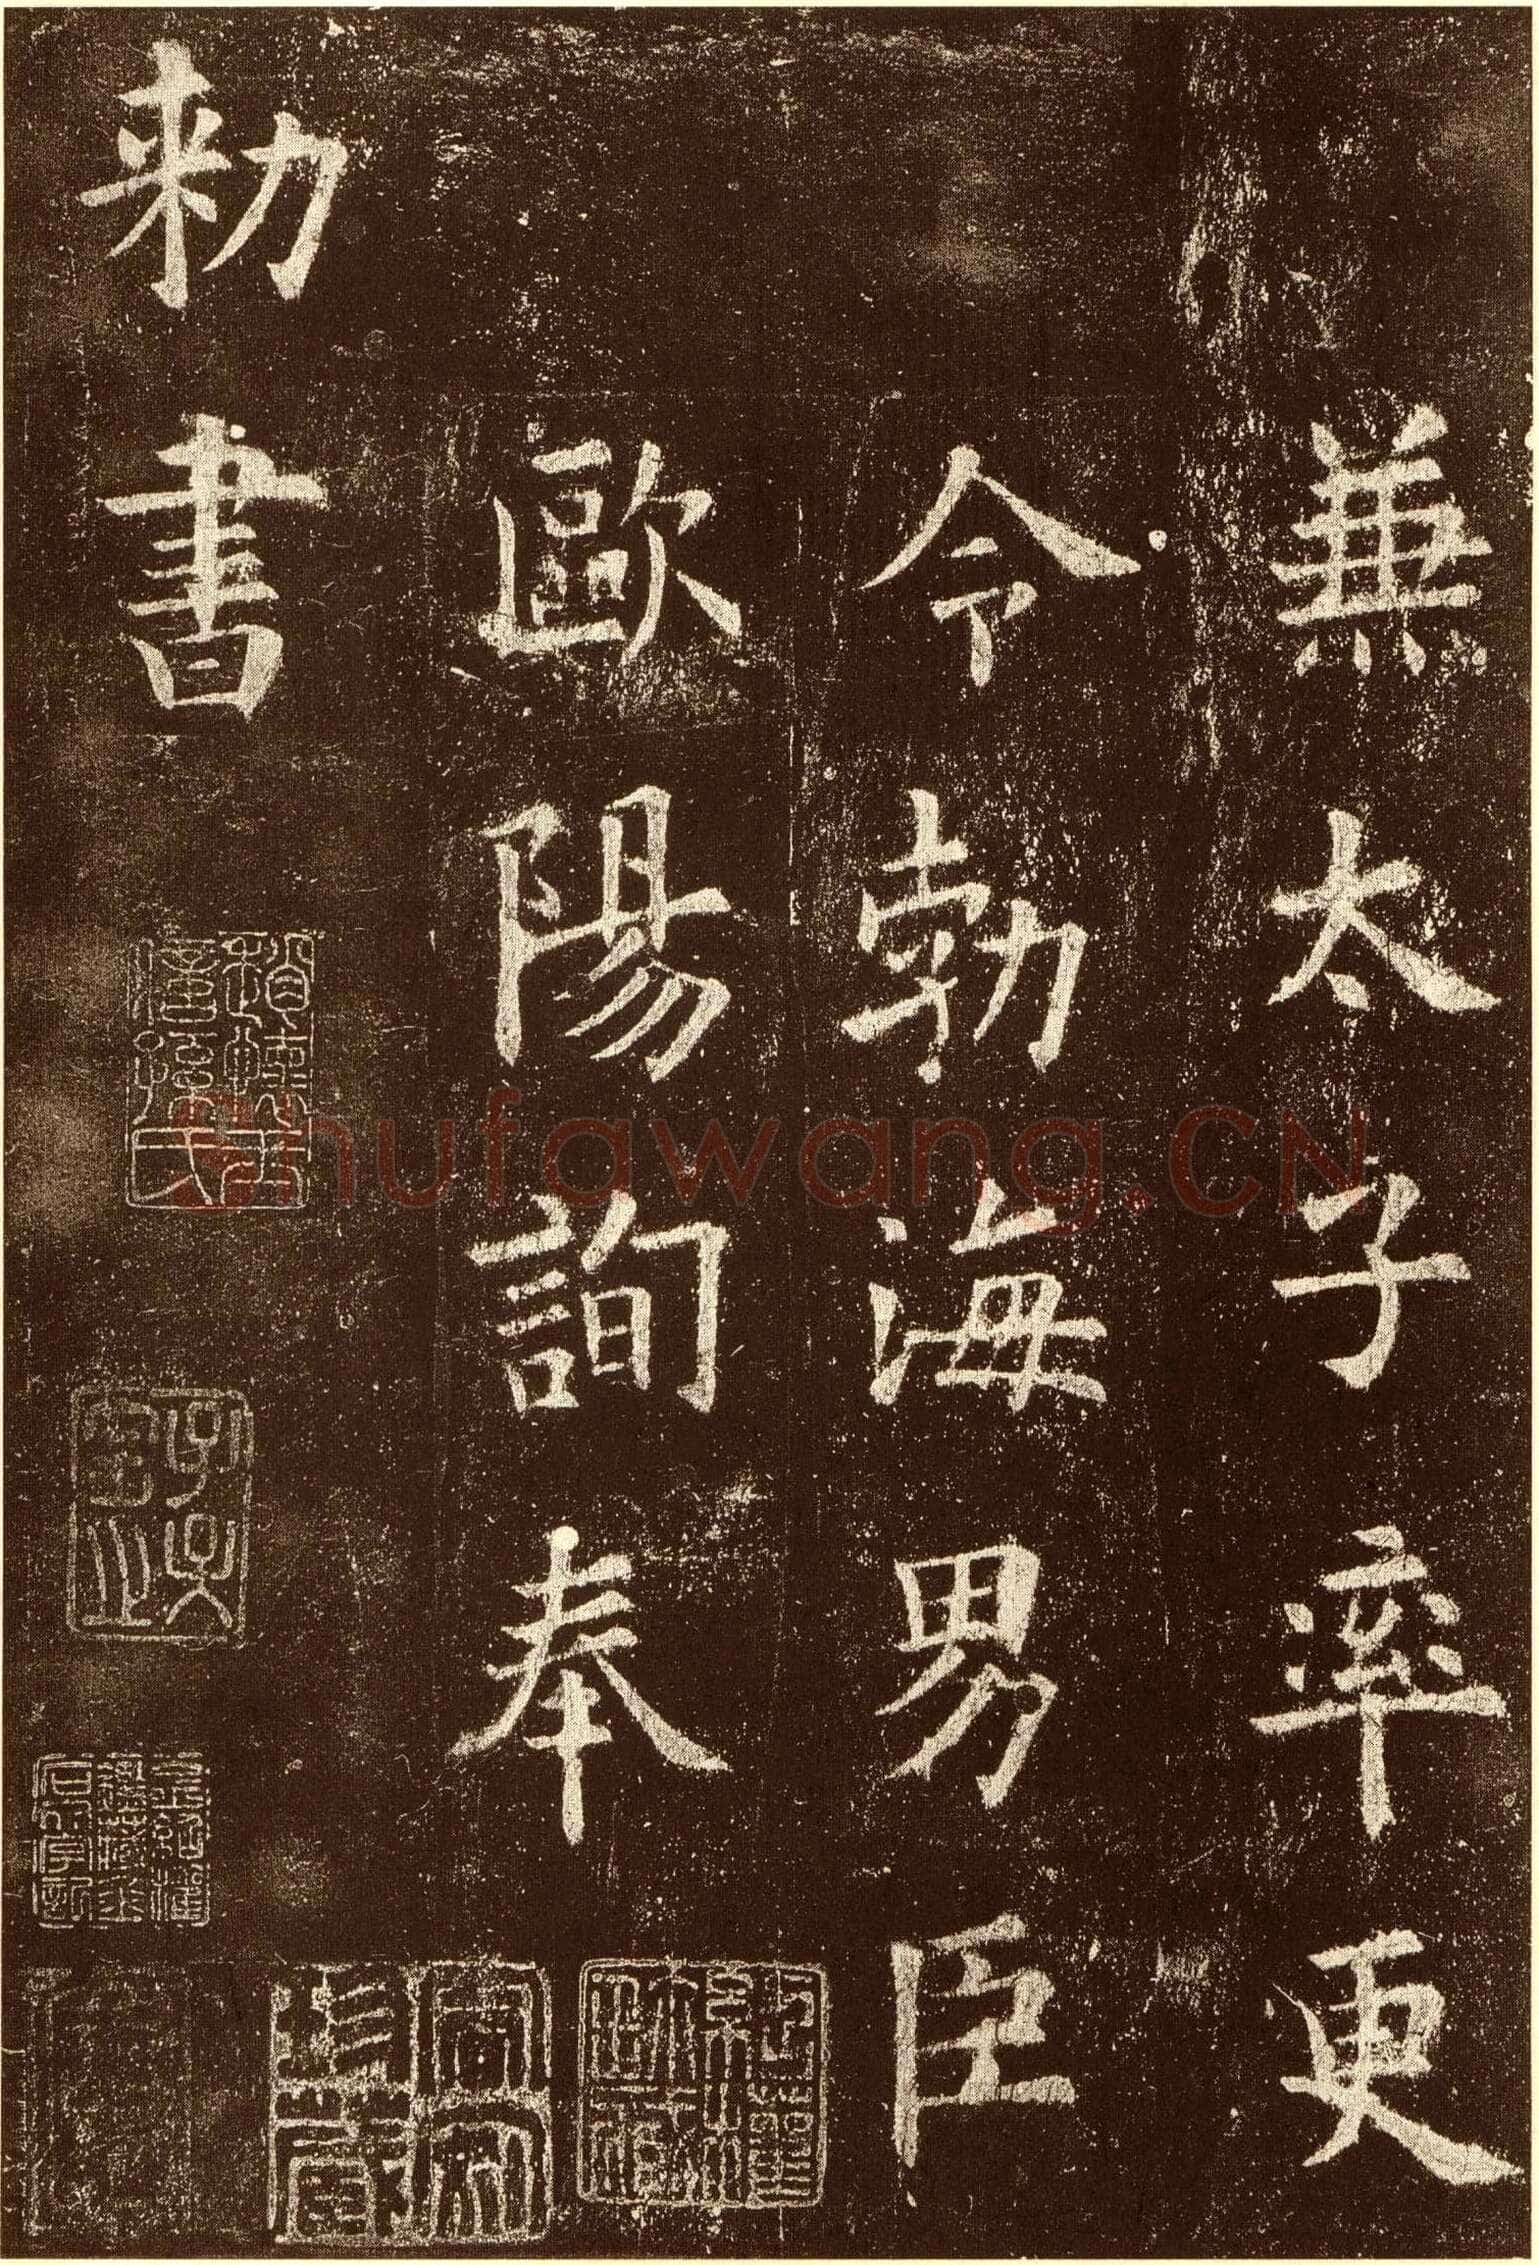 兼太子率更
令勃海男臣
歐陽詢奉
勑書
Shufawang.CN